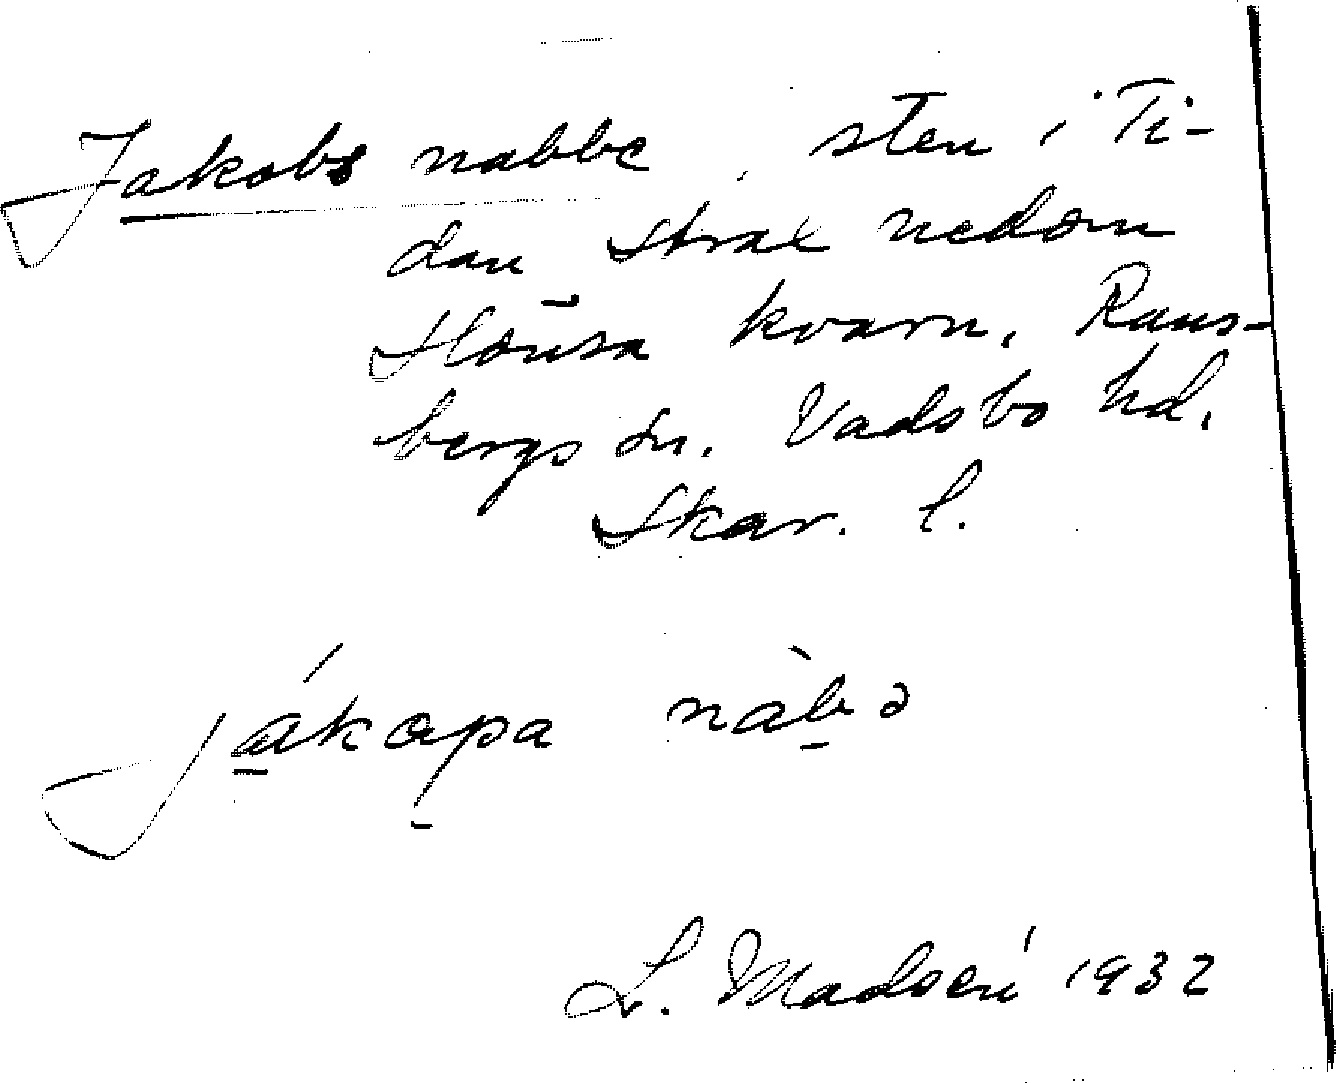 Jakobs nabbe, sten i Ti-
dan strax nedom
kvarn, Rans-
bergs sn. Vadsbo hd.
Skar. l.
jákɑpa nàbə
L. Madsén 1932